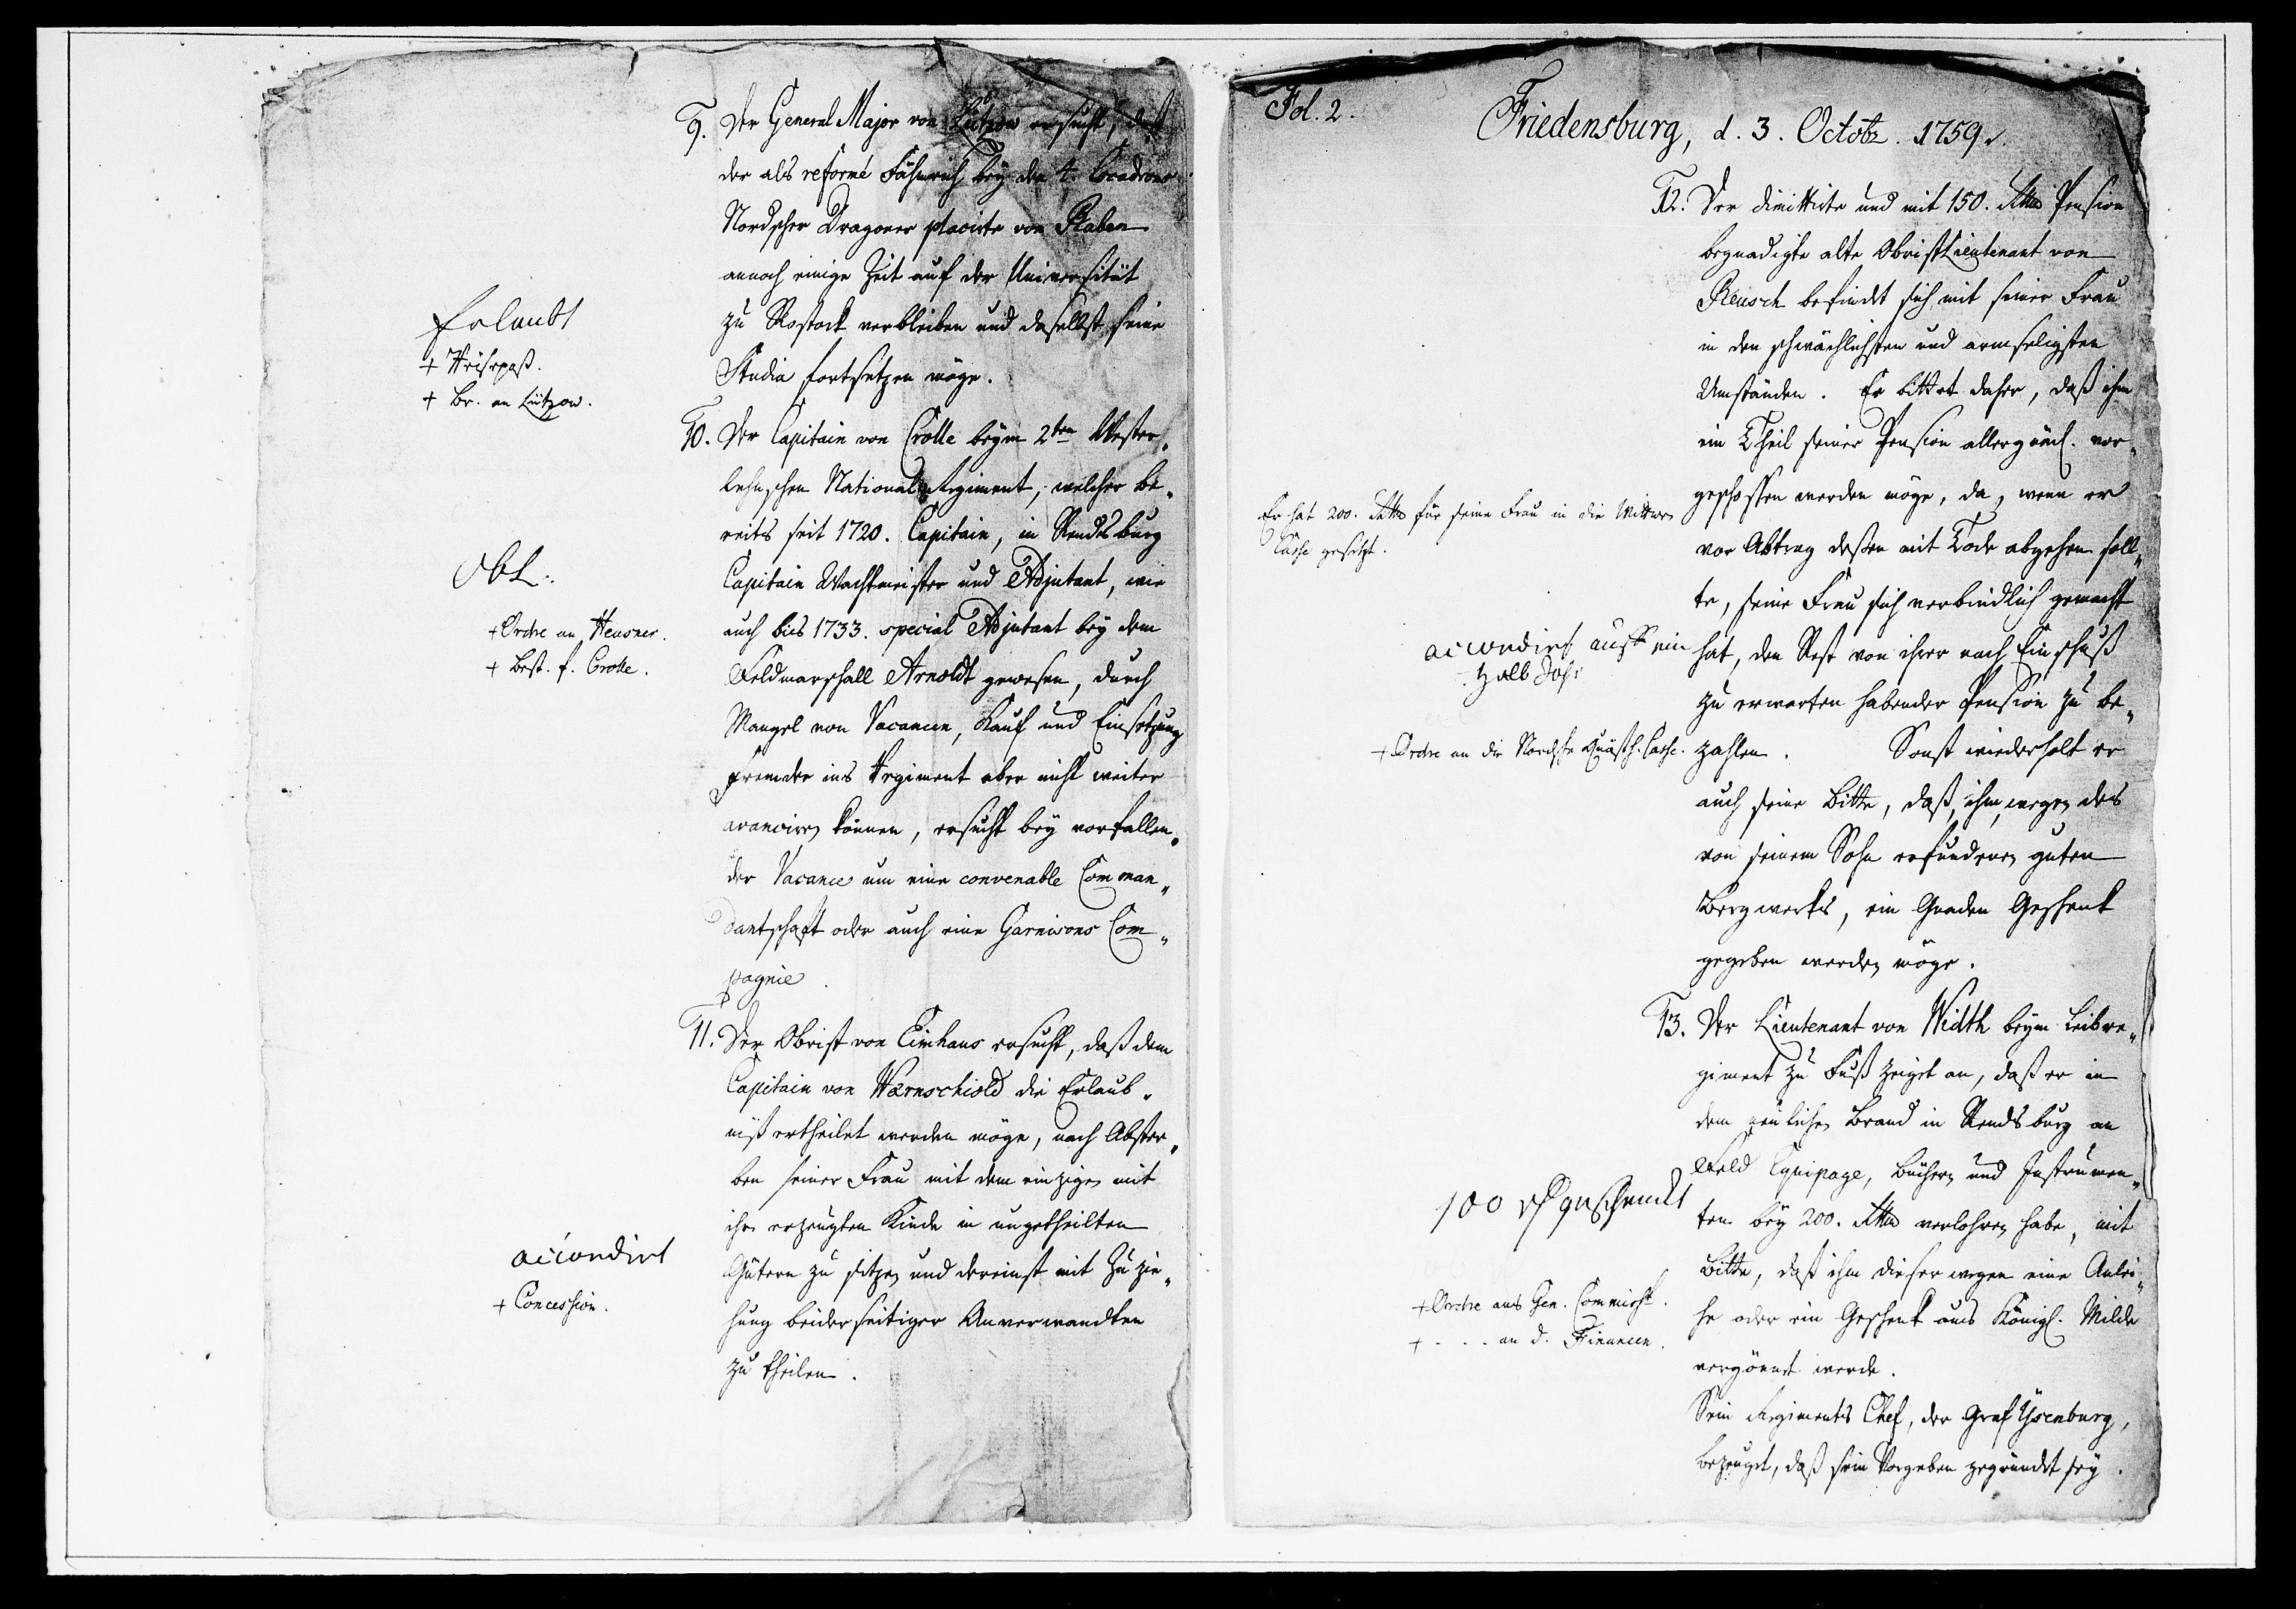 9. Der General Major von Lützow ersucht, daß
der als reformé Fähnrich bey den 4. Escadrons
Nordscher Dragoner placirte von Raben
annoch einige Zeit auf der Universität
zu Rostock verbleiben und daselbst seine
Studia fortsetzen möge.
Erlaubt
+ Reisepaß.
+ Br. an Lützow.
10. Der Capitain von Crolle beym 2ten Wester„
lehnschen National Regiment, welcher be„
reits seit 1720. Capitain, in Rendsburg
Capitain Wachtmeister und Adjutant, wie
auch bis 1733. special Adjutant bey dem
Feldmarschall Arnoldt gewesen, durch
Mangel von Vacancen, Kauf und Einsetzung
fremder ins Regiment aber nicht weiter
avanciren können, ersucht bey vorfallen„
der Vacance um eine convenable Comman„
dantschaft oder auch eine Garnisons Com„
pagnie.
ObL.
+ Ordre an Heusner.
+ Best. f. Crolle.
11. Der Obrist von Eimhaus ersucht, daß dem
Capitain von Wærnschiold die Erlaub„
niß ertheilet werden möge, nach Abster„
ben seiner Frau mit dem einzigen mit
ihr erzeugten Kinde in ungetheilten
Gütern zu sitzen und dereinst mit Zuzie„
hung beiderseitiger Anverwandten
zu theilen.
accordirt
+ Concession.
Fol. 2.
Friedensburg, d. 3. Octobr. 1759.
12. Der dimittirte und mit 150. Rthlr Pension
begnadigte alte Obristlieutenant von
Reusch befindet sich mit seiner Frau
in den schwächlichsten und armseligsten
Umständen. Er bittet daher, daß ihm
ein Theil seiner Pension allergnäd. vor„
geschossen werden möge, da, wenn er
vor Abtrag deßen mit Tode abgehen soll„
te, seine Frau sich verbindlich gemacht
hat, den Rest von ihrer nach Einschuß
zu erwarten habender Pension zu be„
zahlen. Sonst wiederholt er
auch seine Bitte, daß ihm, wegen des
von seinem Sohn erfundenen guten
Bergwerks, ein Gnaden Geschenk
gegeben werden möge.
Er hat 200. Rthlr für seine Frau in die Wittwen
Casse gesetzt.
accordirt auff ein
halb Jahr
+ Ordre an die Nordsche Quästh. Casse.
13. Der Lieutenant von Width beym Leibre„
giment zu Fuß zeiget an, daß er in
dem neulichen Brand in Rendsburg an
Feld Equipage, Büchern und Instrumen„
ten bey 200. Rthlr verlohren habe, mit
Bitte, daß ihm dieserwegen eine Anlei„
he oder ein Geschenk aus Königl. Milde
vergönnet werde.
Sein Regiments Chef, der Graf Ysenburg,
bezeuget, daß sein Vorgeben gegründet sey.
100 geschenckt
+ Ordre ans Gen. Commisst.
+ . . . an d. Financen.